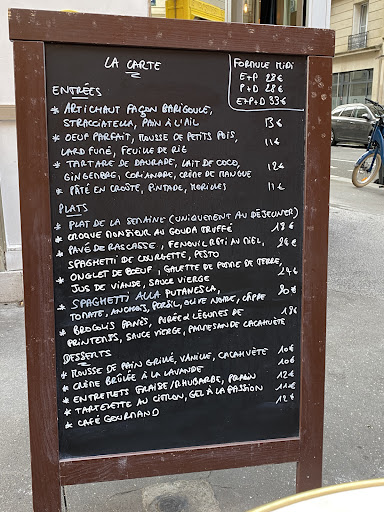 LA CARTE
FORMULE MIDI
E+P 28€
P+D 28€
E+P+D 33€
ENTRÉES
* ARTICHAUT FAÇON BARIGOULE,
STRACCIATELLA, PAIN À L'AIL 13€
* OEUF PARFAIT, MOUSSE DE PETITS POIS, 11€
LARD FUMÉ, FEUILLE DE RIZ
* TARTARE DE DAURADE, LAIT DE COCO, 12€
GINGEMBRE, CORIANDRE, CRÈME DE MANGUE
* PÂTÉ EN CROÛTE, PINTADE, MORILLES 11€
PLATS
* PLAT DE LA SEMAINE (UNIQUEMENT AU DÉJEUNER)
* CROQUE MONSIEUR AU GOUDA TRUFFÉ 18€
* PAVÉ DE RASCASSE, FENOUIL RÔTI AU MIEL, 26€
SPAGHETTI DE COURGETTE, PESTO
* ONGLET DE BOEUF, GALETTE DE POMME DE TERRE, 24€
JUS DE VIANDE, SAUCE VIERGE
* SPAGHETTI ALLA PUTANESCA, 20€
TOMATE, ANCHOIS, PERSIL, OLIVE NOIRE, CÂPRE
* BROCOLIS PANÉS, PURÉE & LÉGUMES DE 18€
PRINTEMPS, SAUCE VIERGE, PARMESAN DE CACAHUÈTE
DESSERTS
* MOUSSE DE PAIN GRILLÉ, VANILLE, CACAHUÈTE 10€
* CRÈME BRÛLÉE À LA LAVANDE 10€
* ENTREMETS FRAISE/RHUBARBE, PRALIN 12€
* TARTELETTE AU CITRON, GEL À LA PASSION 11€
* CAFÉ GOURMAND 12€